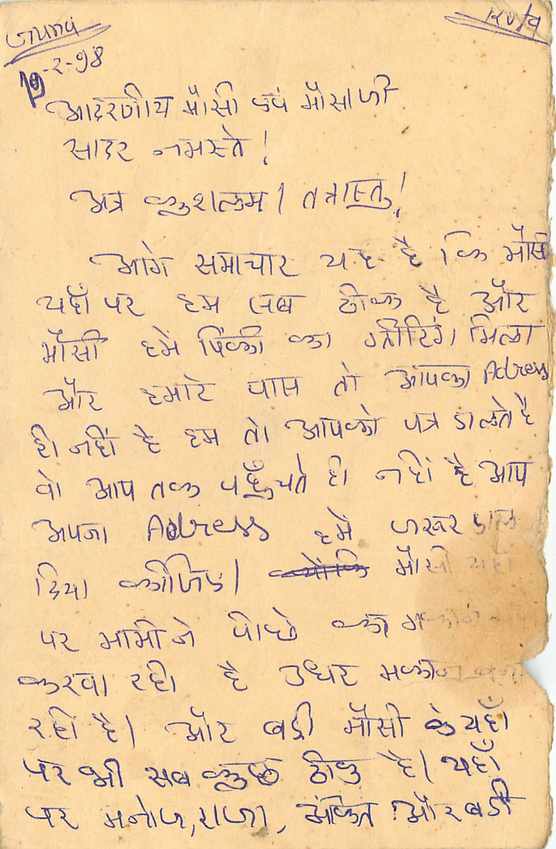 19-2-98
आदरणीय मौसी एवं मौसाजी
सादर नमस्ते!
अत्र कुशलम। तत्रास्तु!
आगे समाचार यह है कि मौसी
यहाँ पर हम सब ठीक है और
मौसी हमें पिंकी का ग्रीटिंग मिला
और हमारे पास तो आपका Address
ही नहीं है हम तो आपको पत्र डालते है
वो आप तक पहुँचते ही नहीं है आप
अपना Address हमें जरूर
दिया कीजिए। मौसी यहां
पर मामी ने पीछे का
करवा रही है उधर मकान
रही है। और बडी मौसी के यहाँ
पर भी सब कुछ ठीक है। यहाँ
पर मनोज, राजा, अंकित और बडी